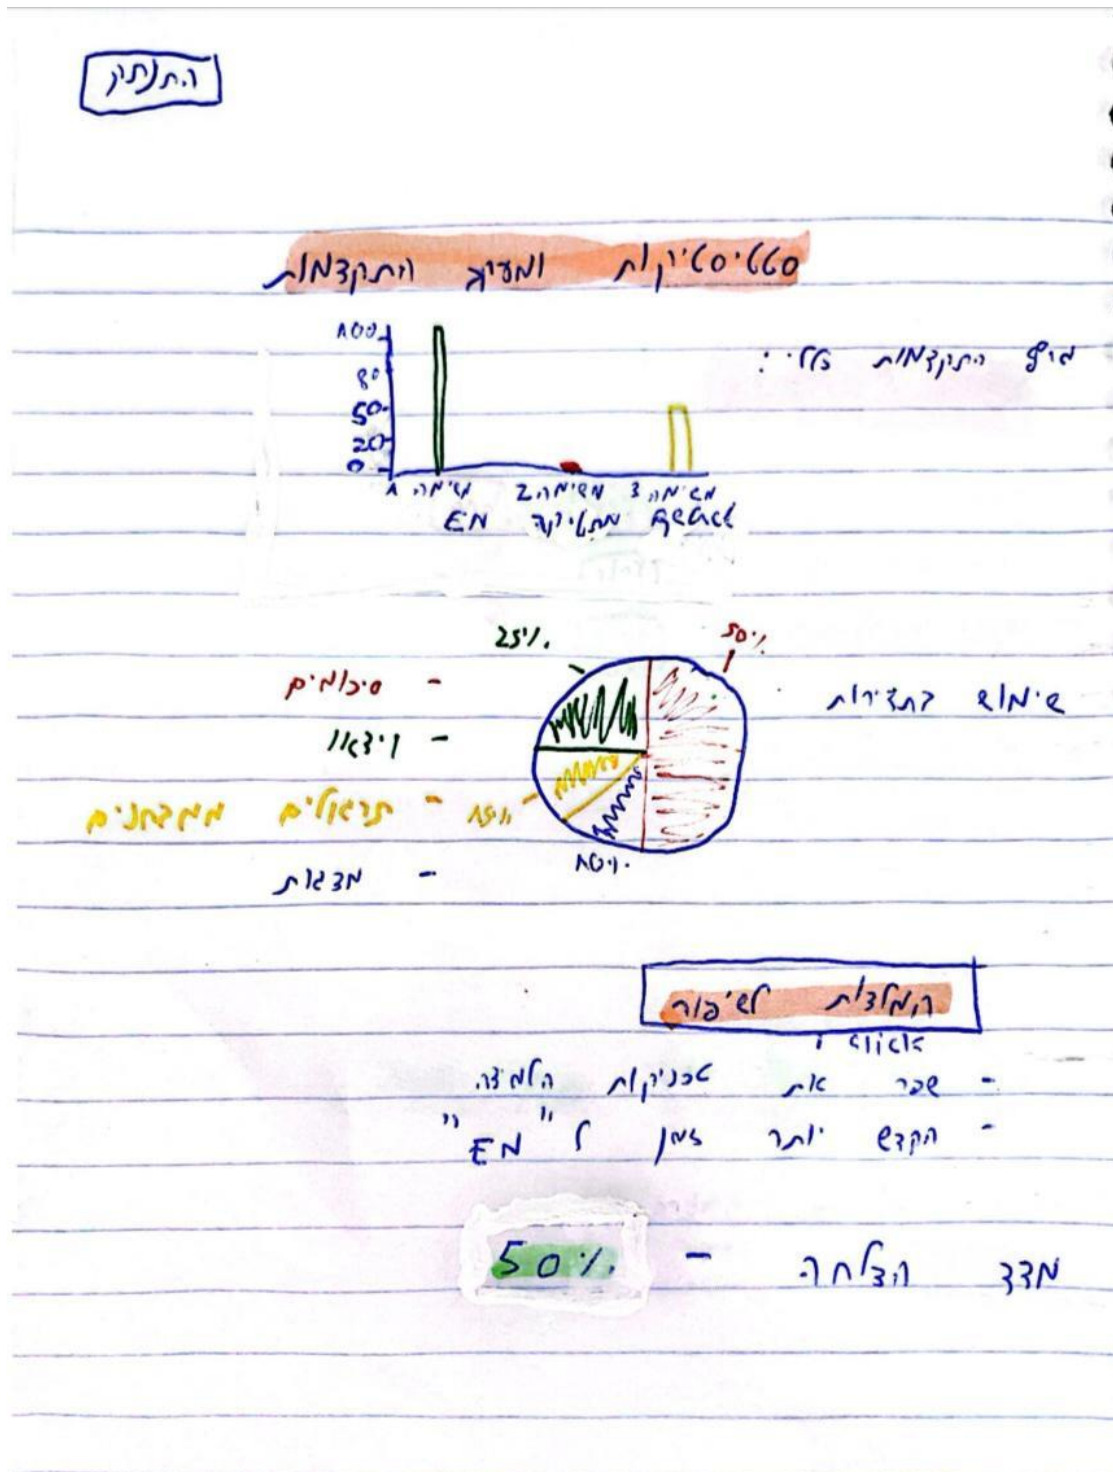 התנתק
סטטיסטיקות ומעקב התקדמות
גרף התקדמות כללי :
100
80
50
20
0
משימה 1 משימה 2 משימה 3
מתטיקה EM
שימוש בתדירות
50%
25%
15%
10%
- סיכומים
- וידאו
- תרגולים ממבחנים
- מצגות
המלצות לשיפור
- שפר את טכניקות הלמידה
- הקדש יותר זמן ל "EM"
מדד הצלחה - 50%